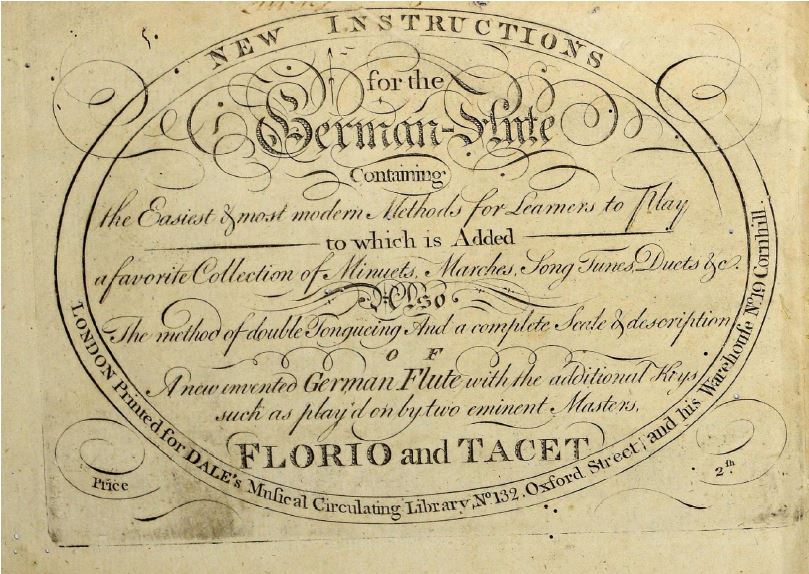 NEW INSTRUCTIONS
for the
German-Flute
Containing
the Easiest & most modern Methods for Learners to Play
to which is Added
a favorite Collection of Minuets, Marches, Song Tunes, Duets &c.
Also
The method of double Tongueing And a complete Scale & description
OF
A new invented German Flute with the additional Keys
such as play'd on by two eminent Masters,
FLORIO and TACET
LONDON Printed for DALE's Musical Circulating Library, No. 132. Oxford Street, and his Warehouſe No. 19 Cornhill.
Price
2th